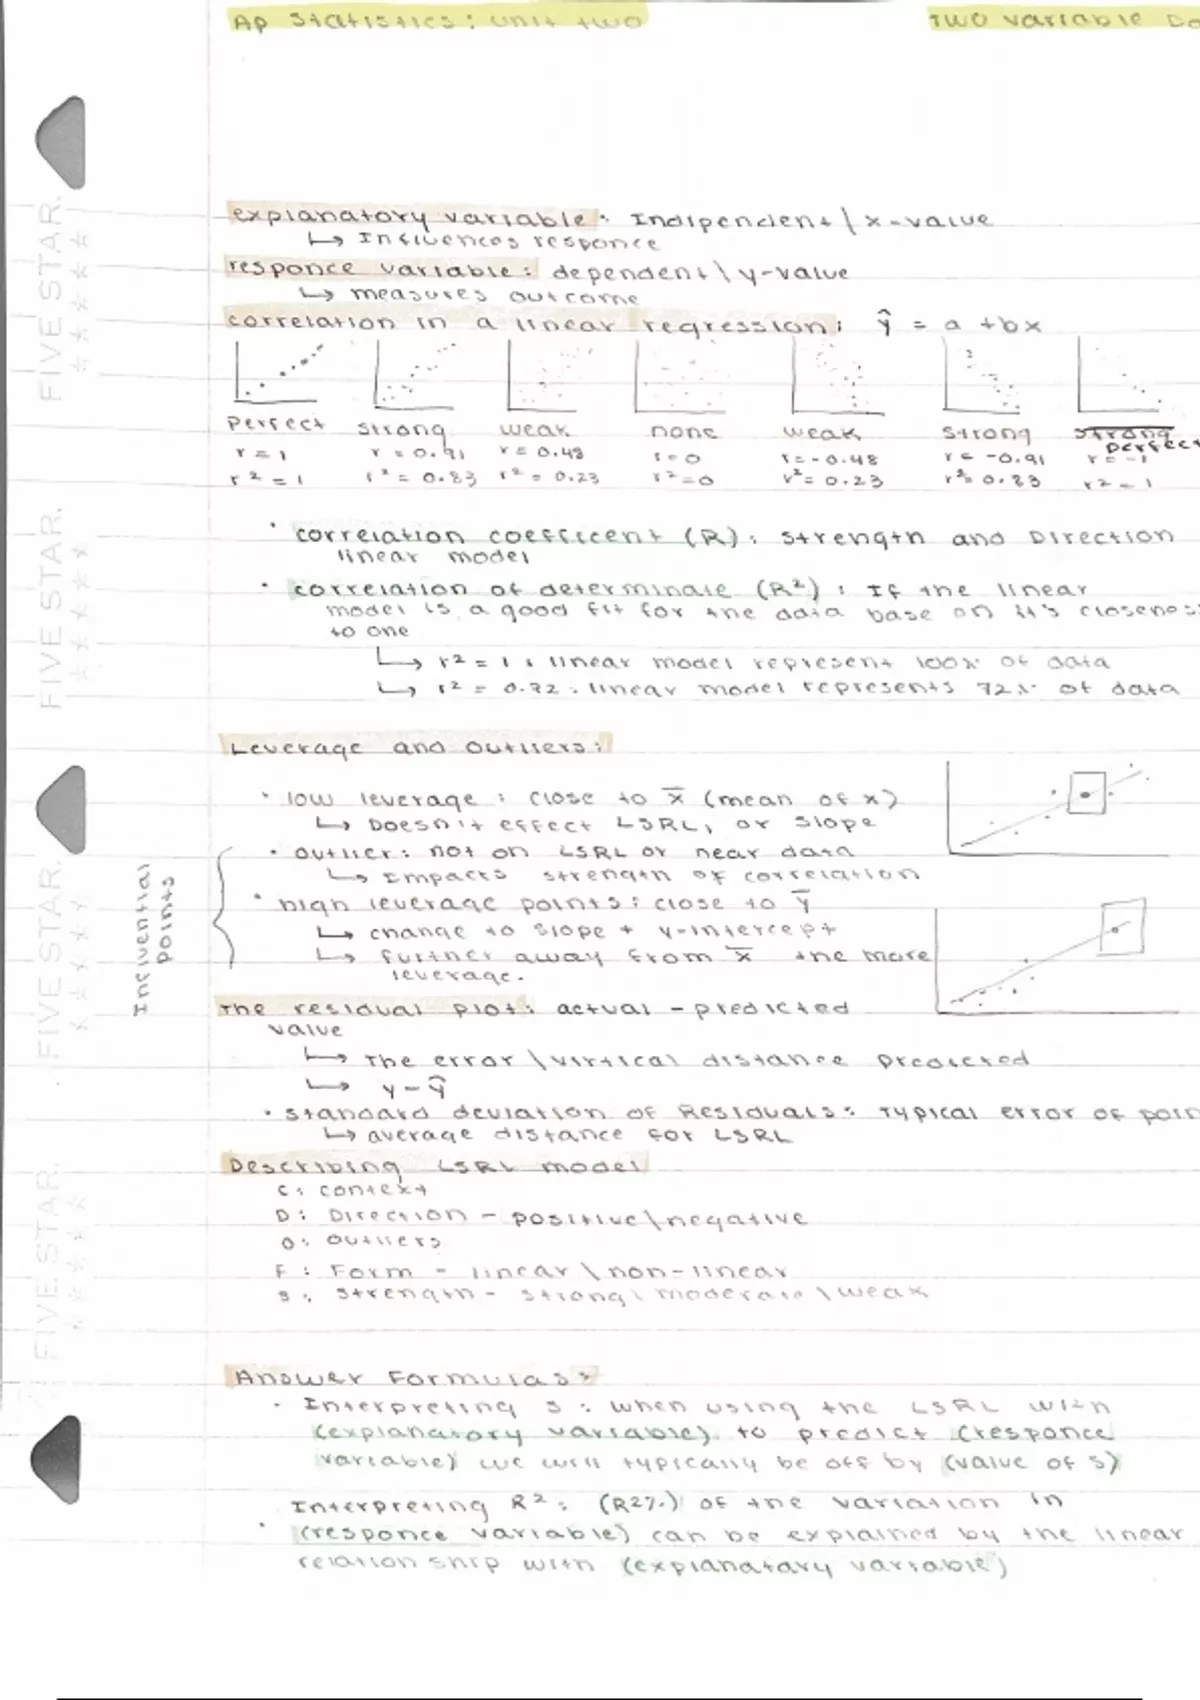 AP Statistics: unit two
Two variable Da
explanatory variable: Indipendent \ x-value
↳ Influences responce
responce variable: dependent \ y-value
↳ measures outcome
correlation in a linear regression: ŷ = a + bx
Perfect strong weak none weak strong strong perfect
r = 1 r = 0.91 r = 0.48 r = 0 r = -0.48 r = -0.91 r = -1
r² = 1 r² = 0.83 r² = 0.23 r² = 0 r² = 0.23 r² = 0.83 r² = 1
• correlation coefficent (R): strength and Direction
linear model
• correlation of determinate (R²): If the linear
model is a good fit for the data base on it's closenes
to one
↳ r² = 1: linear model represent 100% of data
↳ r² = 0.72: linear model represents 72% of data
Leverage and Outliers:
• low leverage: close to x̄ (mean of x)
↳ Doesn't effect LSRL, or slope
• outlier: not on LSRL or near data
↳ Impacts strength of correlation
• high leverage points: close to ȳ
↳ change to slope + y-intercept
↳ further away from x̄ the more
leverage.
Influential
points
The residual plot: actual - predicted
value
↳ The error \ virtical distance predicted
↳ y - ŷ
• standard deviation of Residuals: Typical error of poin
↳ average distance for LSRL
Describing LSRL model
C: context
D: Direction - positive\negative
O: outliers
F: Form - linear \ non-linear
S: strength - strong \ moderate \ weak
Answer Formulas:
• Interpreting s: when using the LSRL with
(explanatory variable) to predict (responce
variable) we will typically be off by (value of s)
Interpreting R²: (R²%) of the variation in
• (responce variable) can be explained by the linear
relationship with (explanatary variable)
FIVE STAR.
FIVE STAR.
FIVE STAR.
FIVE STAR.